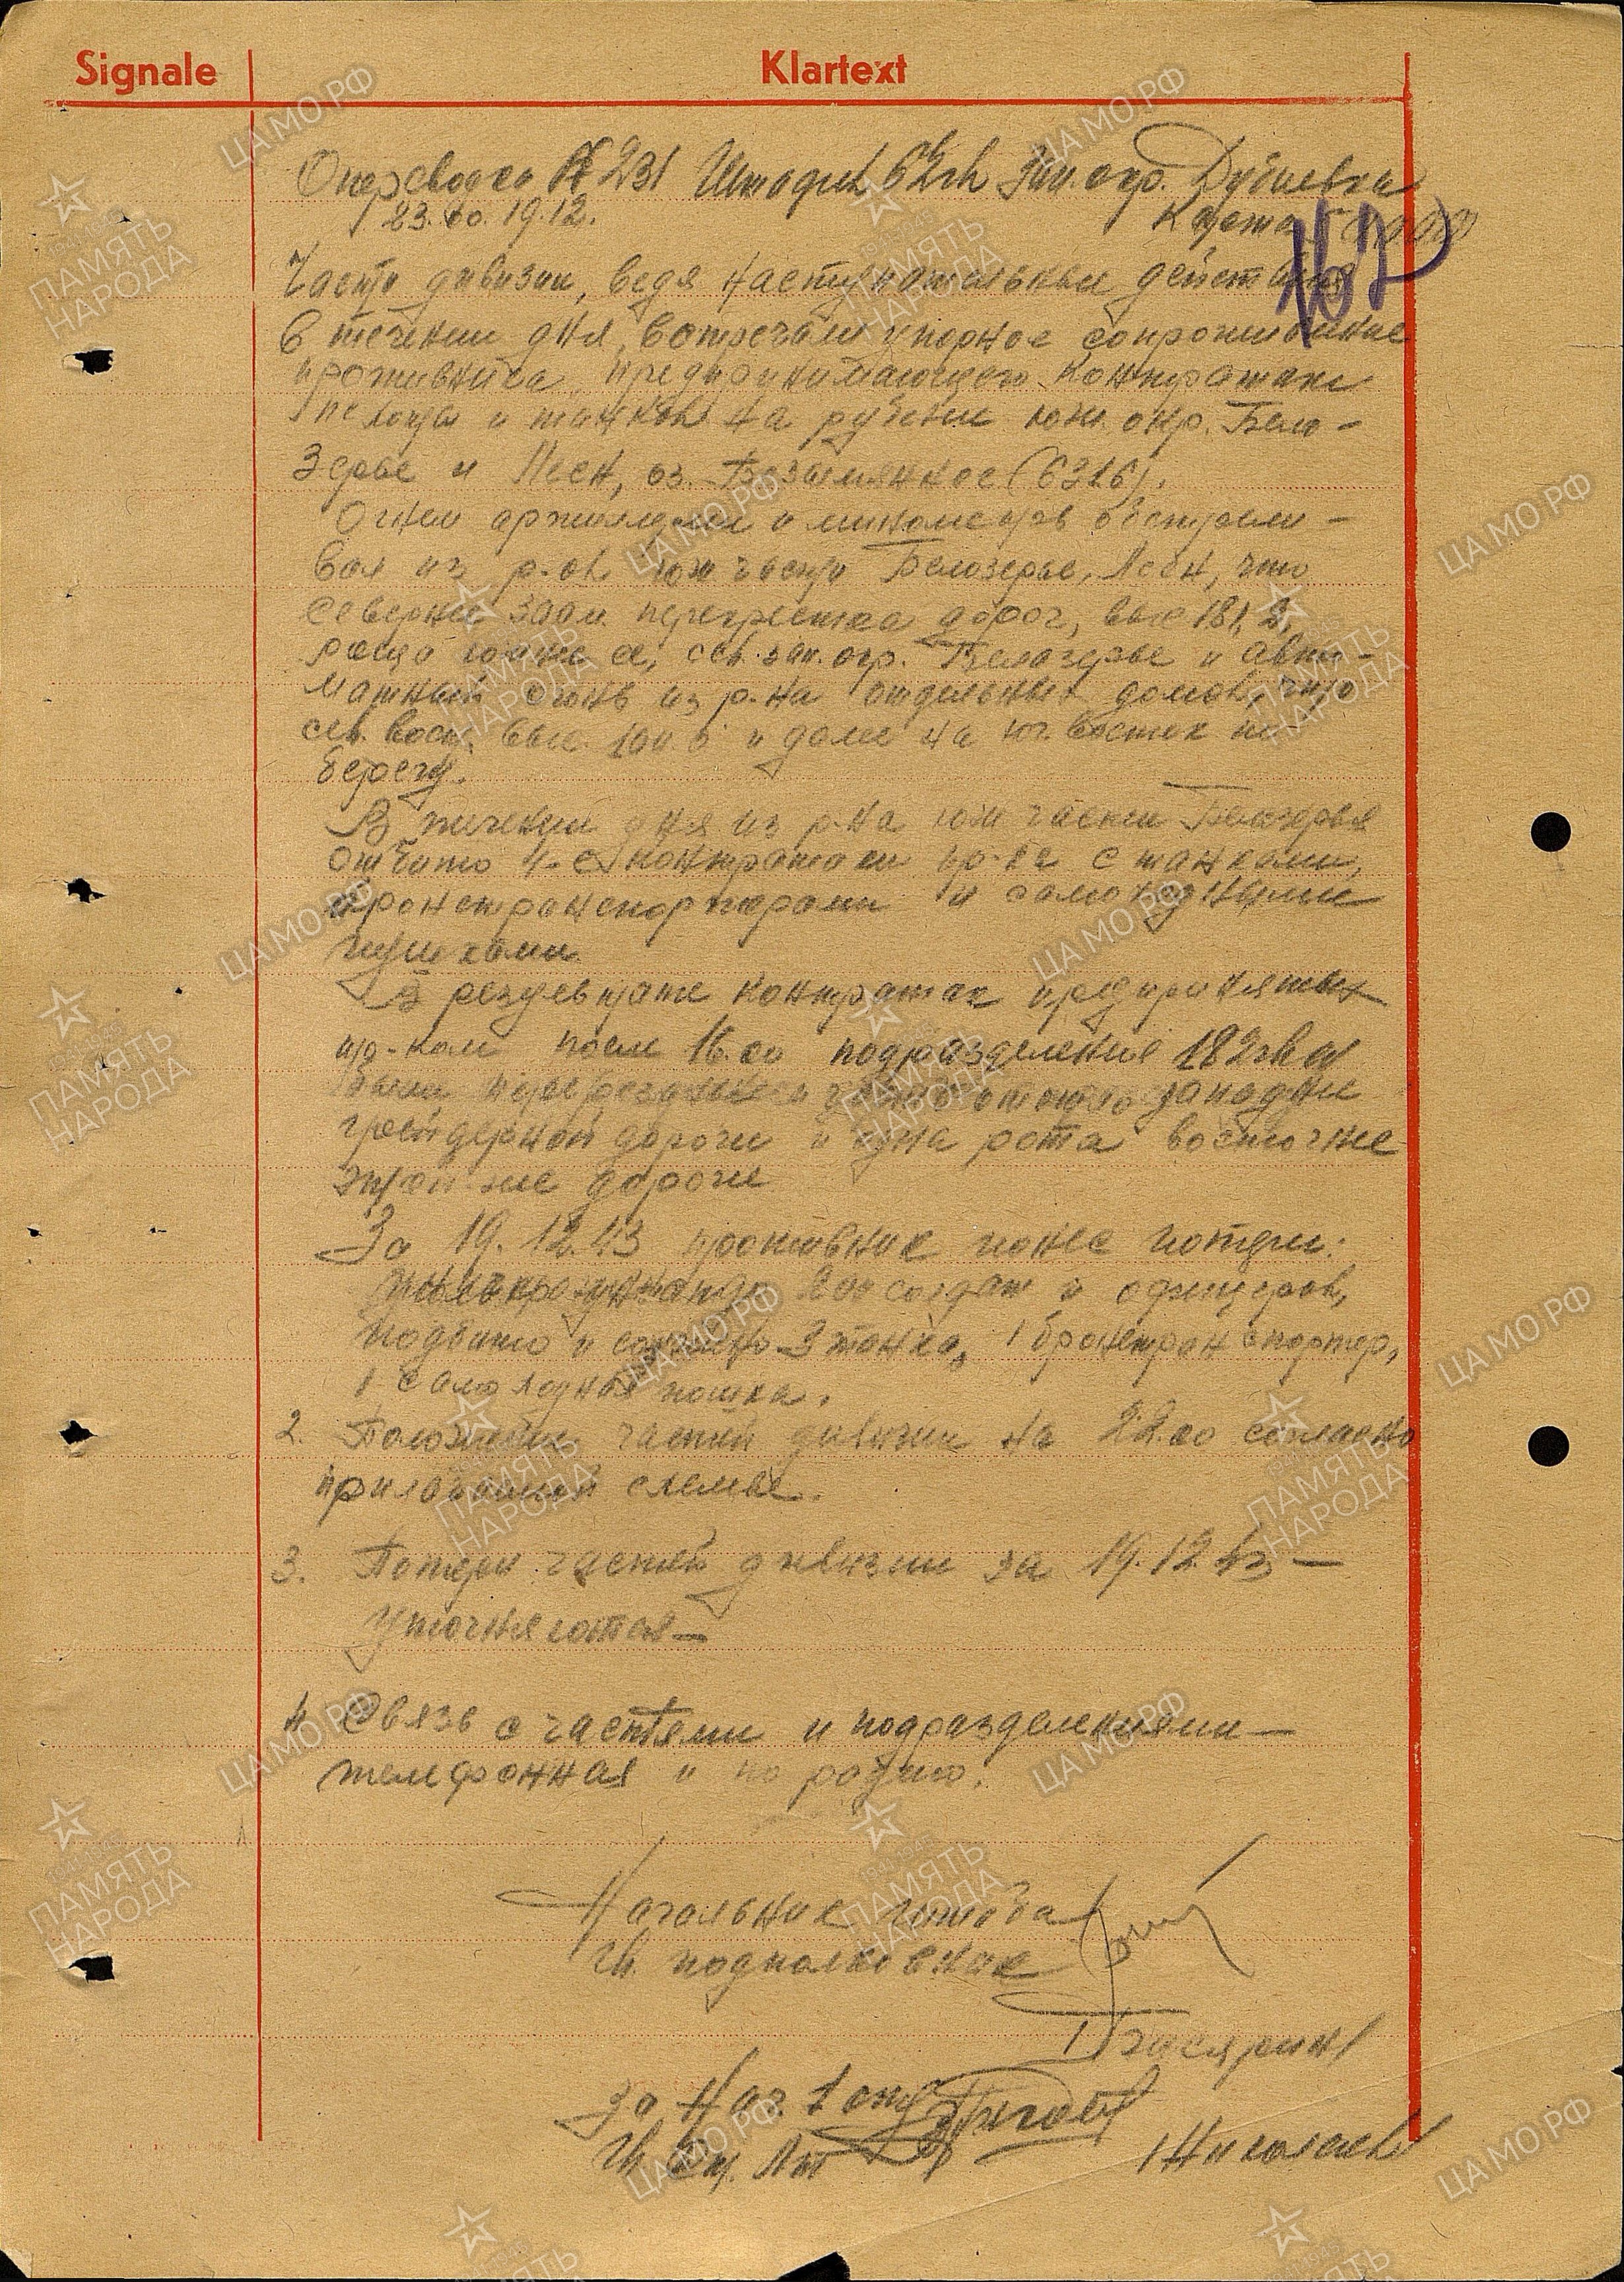 Signale Klartext
Оперсводка № 231 Штадив 62 гв Зап. окр. Дубиевка
23.00. 19.12. Карта 50000
167
Части дивизии, ведя наступательные действия
в течении дня, встречали упорное сопротивление
противника, предпринимающего контратаки
пехоты и танков на рубеже юж. окр. Бело-
зерье и Песк, оз. Безымянное (6216).
Огнем артиллерии и минометов обстрели-
вал из р-на юж части Белозерье, Песк, что
севернее 300 м. перекрестка дорог, выс 181,2,
роща южнее ее, сев. зап. окр. Белозерье и авто-
матный огонь из р-на отдельных домов, что
сев. вост. выс. 100.6 и далее на юг. восток по
берегу.
В течении дня из р-на юж части Белозерья
отбито 4-е контратаки пр-ка с танками,
бронетранспортерами и самоходными
пушками.
В результате контратак предпринятых
пр-ком после 16.00 подразделения 182 гв сп
были и часть отошло западнее
грейдерной дороги и одна рота восточнее
этой же дороги
За 19.12.43 противник понес потери:
до 200 солдат и офицеров,
подбито и сожжено 3 танка, 1 бронетранспортер,
1 самоходная пошка.
2. Положение частей дивизии на 22.00 согласно
прилагаемой схемы.
3. Потери частей дивизии за 19.12.43 —
Уточняются —
4 Связь с частями и подразделениями —
телефонная и по радио.
Начальник штаба
Гв. подполковник
За Нач. 1 отд
Гв. Ст. Лт /Николаев/